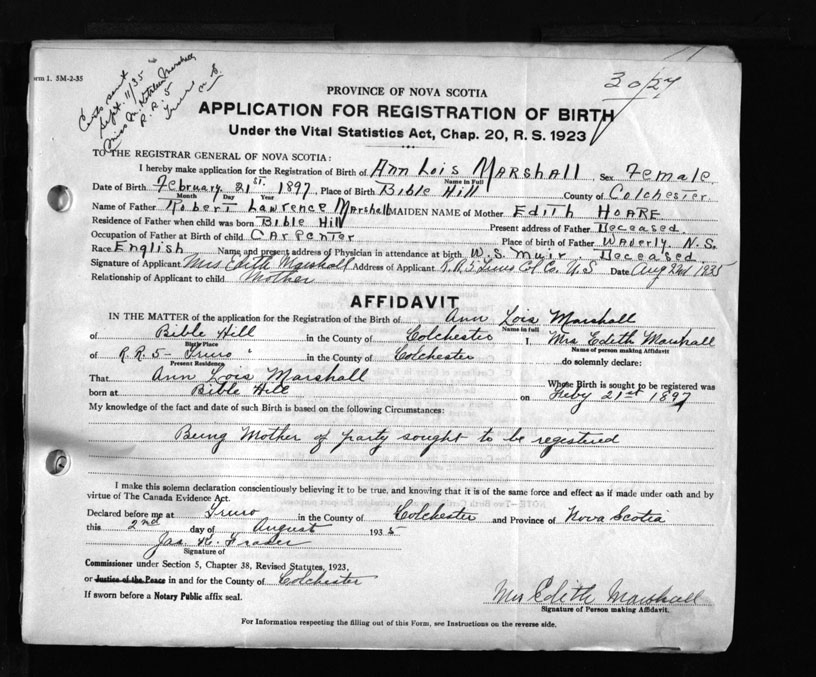 orm 1. 5M-2-35
Certs sent
Sept. 11/35
Miss M. Kathleen Marshall
R. R. 5
Truro
30/27
PROVINCE OF NOVA SCOTIA
APPLICATION FOR REGISTRATION OF BIRTH
Under the Vital Statistics Act, Chap. 20, R. S. 1923
TO THE REGISTRAR GENERAL OF NOVA SCOTIA:
I hereby make application for the Registration of Birth of Ann Lois MARSHALL Sex Female.
Name in Full
Date of Birth February 21st. 1897, Place of Birth Bible Hill County of Colchester
Month Day Year
Name of Father Robert Lawrence Marshall MAIDEN NAME of Mother Edith HOARE
Residence of Father when child was born Bible Hill Present address of Father Deceased
Occupation of Father at Birth of child Carpenter Place of birth of Father Waverly, N.S.
Race English Name and present address of Physician in attendance at birth W.S. Muir, Deceased.
Signature of Applicant Mrs Edith Marshall Address of Applicant R.R.5 Truro Col Co. N.S Date Aug 2nd 1935
Relationship of Applicant to child Mother
AFFIDAVIT
IN THE MATTER of the application for the Registration of the Birth of Ann Lois Marshall
Name in full
of Bible Hill in the County of Colchester I, Mrs Edith Marshall
Birth Place Name of person making Affidavit
of R.R.5 - Truro in the County of Colchester do solemnly declare:
Present Residence
That Ann Lois Marshall Whose Birth is sought to be registered was
born at Bible Hill on Feby 21st 1897
My knowledge of the fact and date of such Birth is based on the following Circumstances:
Being Mother of party sought to be registered
I make this solemn declaration conscientiously believing it to be true, and knowing that it is of the same force and effect as if made under oath and by
virtue of The Canada Evidence Act.
Declared before me at Truro in the County of Colchester and Province of Nova Scotia
this 2nd day of August 1935
Jas. K. Fraser
Signature of
Commissioner under Section 5, Chapter 38, Revised Statutes, 1923,
or Justice of the Peace in and for the County of Colchester
If sworn before a Notary Public affix seal.
Mrs Edith Marshall
Signature of Person making Affidavit.
For Information respecting the filling out of this Form, see Instructions on the reverse side.